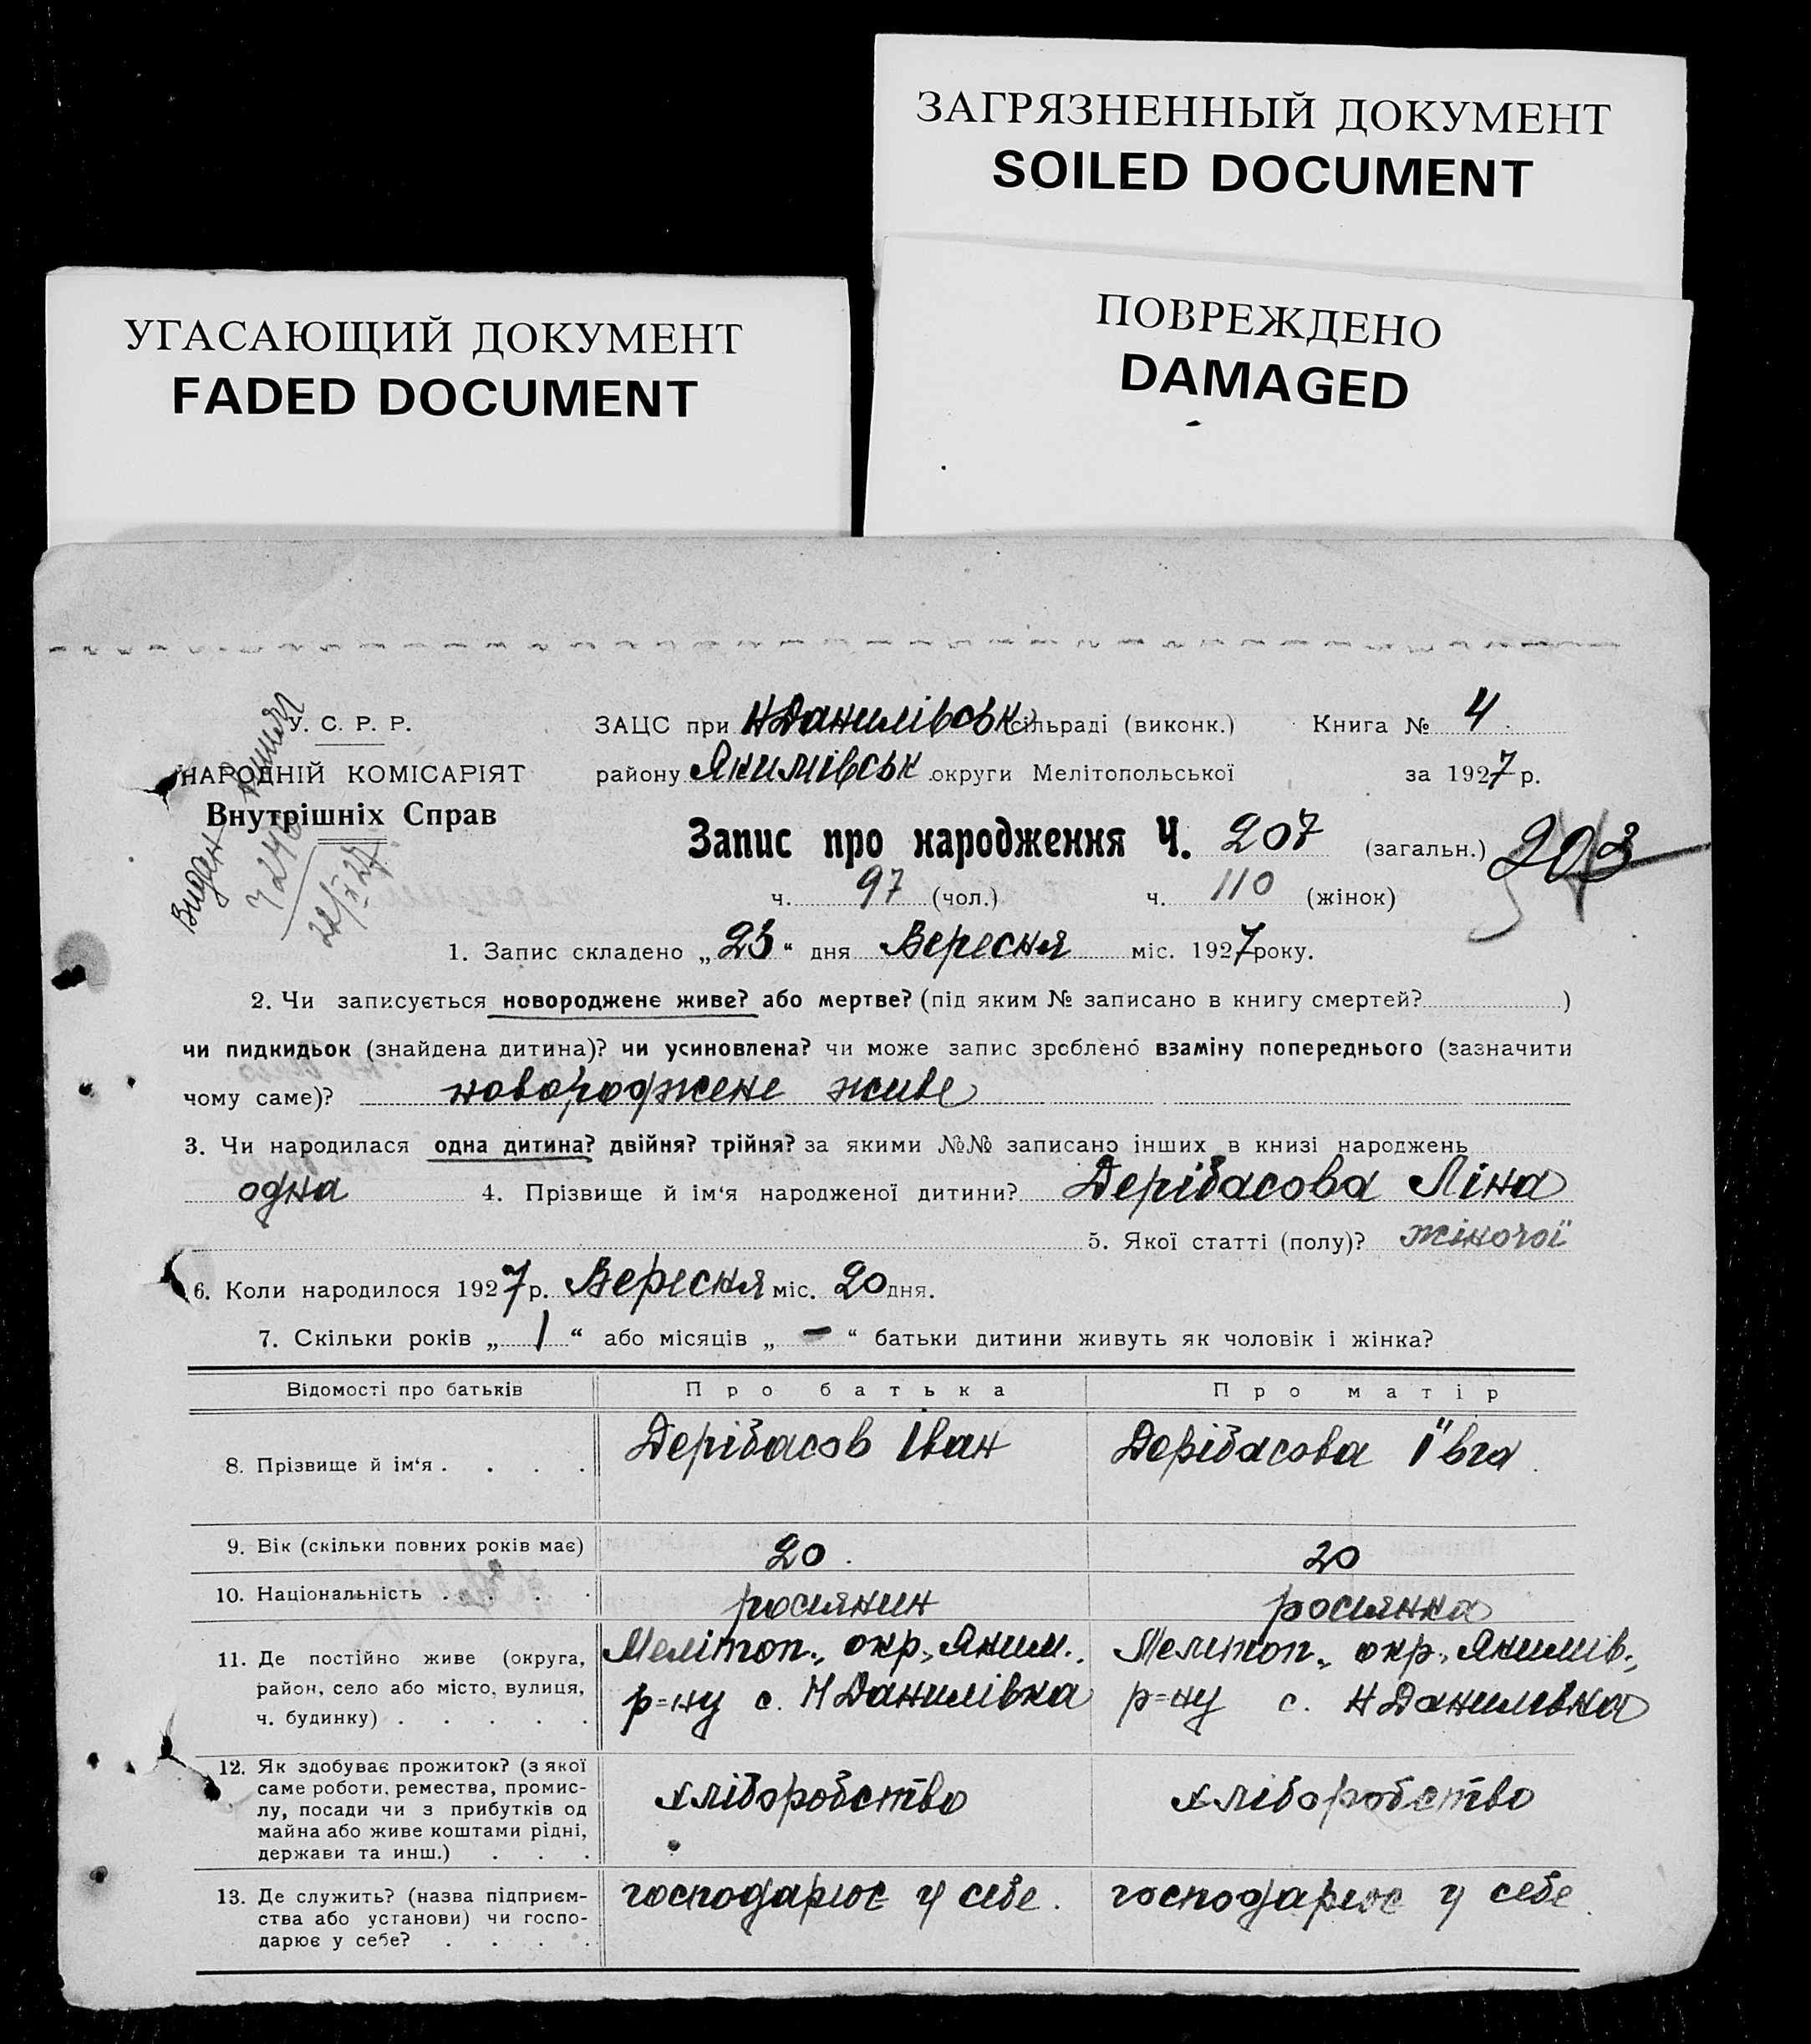 ЗАГРЯЗНЕННЫЙ ДОКУМЕНТ
SOILED DOCUMENT
ПОВРЕЖДЕНО
DAMAGED
УГАСАЮЩИЙ ДОКУМЕНТ
FADED DOCUMENT
У. С. Р. Р.
НАРОДНІЙ КОМІСАРІЯТ
Внутрішніх Справ
Видан
ЗАЦС при Н Данилівськ сільраді (виконк.) Книга № 4
району Якимівськ округи Мелітопольської за 1927 р.
Запис про народження Ч. 207 (загальн.) 203
ч. 97 (чол.) ч. 110 (жінок)
1. Запис складено „23“ дня Вересня міс. 1927 року.
2. Чи записується новороджене живе? або мертве? (під яким № записано в книгу смертей? )
чи пидкидьок (знайдена дитина)? чи усиновлена? чи може запис зроблено взаміну попереднього (зазначити
чому саме)? новороджене живе
3. Чи народилася одна дитина? двійня? трійня? за якими №№ записано інших в книзі народжень
одна 4. Прізвище й ім‘я народженої дитини? Дерібасова Ліна
5. Якої статті (полу)? жіночої
6. Коли народилося 1927 р. Вересня міс. 20 дня.
7. Скільки років „ 1 “ або місяців „ – “ батьки дитини живуть як чоловік і жінка?
Відомості про батьків Про батька Про матір
8. Прізвище й ім‘я . . . . Дерібасов Іван Дерібасова Ївга
9. Вік (скільки повних років має) 20 . 20
10. Національність . . . . росиянин росиянка
11. Де постійно живе (округа, Мелітоп., окр., Яким., Мелитоп., окр., Якимів.,
район, село або місто, вулиця, р=ну с. Н Данилівка р=ну с. Н Данилівка
ч. будинку) . . . . .
12. Як здобуває прожиток? (з якої
саме роботи, ремества, промис-
лу, посади чи з прибутків од хліборобство хліборобство
майна або живе коштами рідні,
держави та инш.) . . .
13. Де служить? (назва підприєм- господарює у себе. господарює у себе
ства або установи) чи госпо-
дарює у себе? . . . .